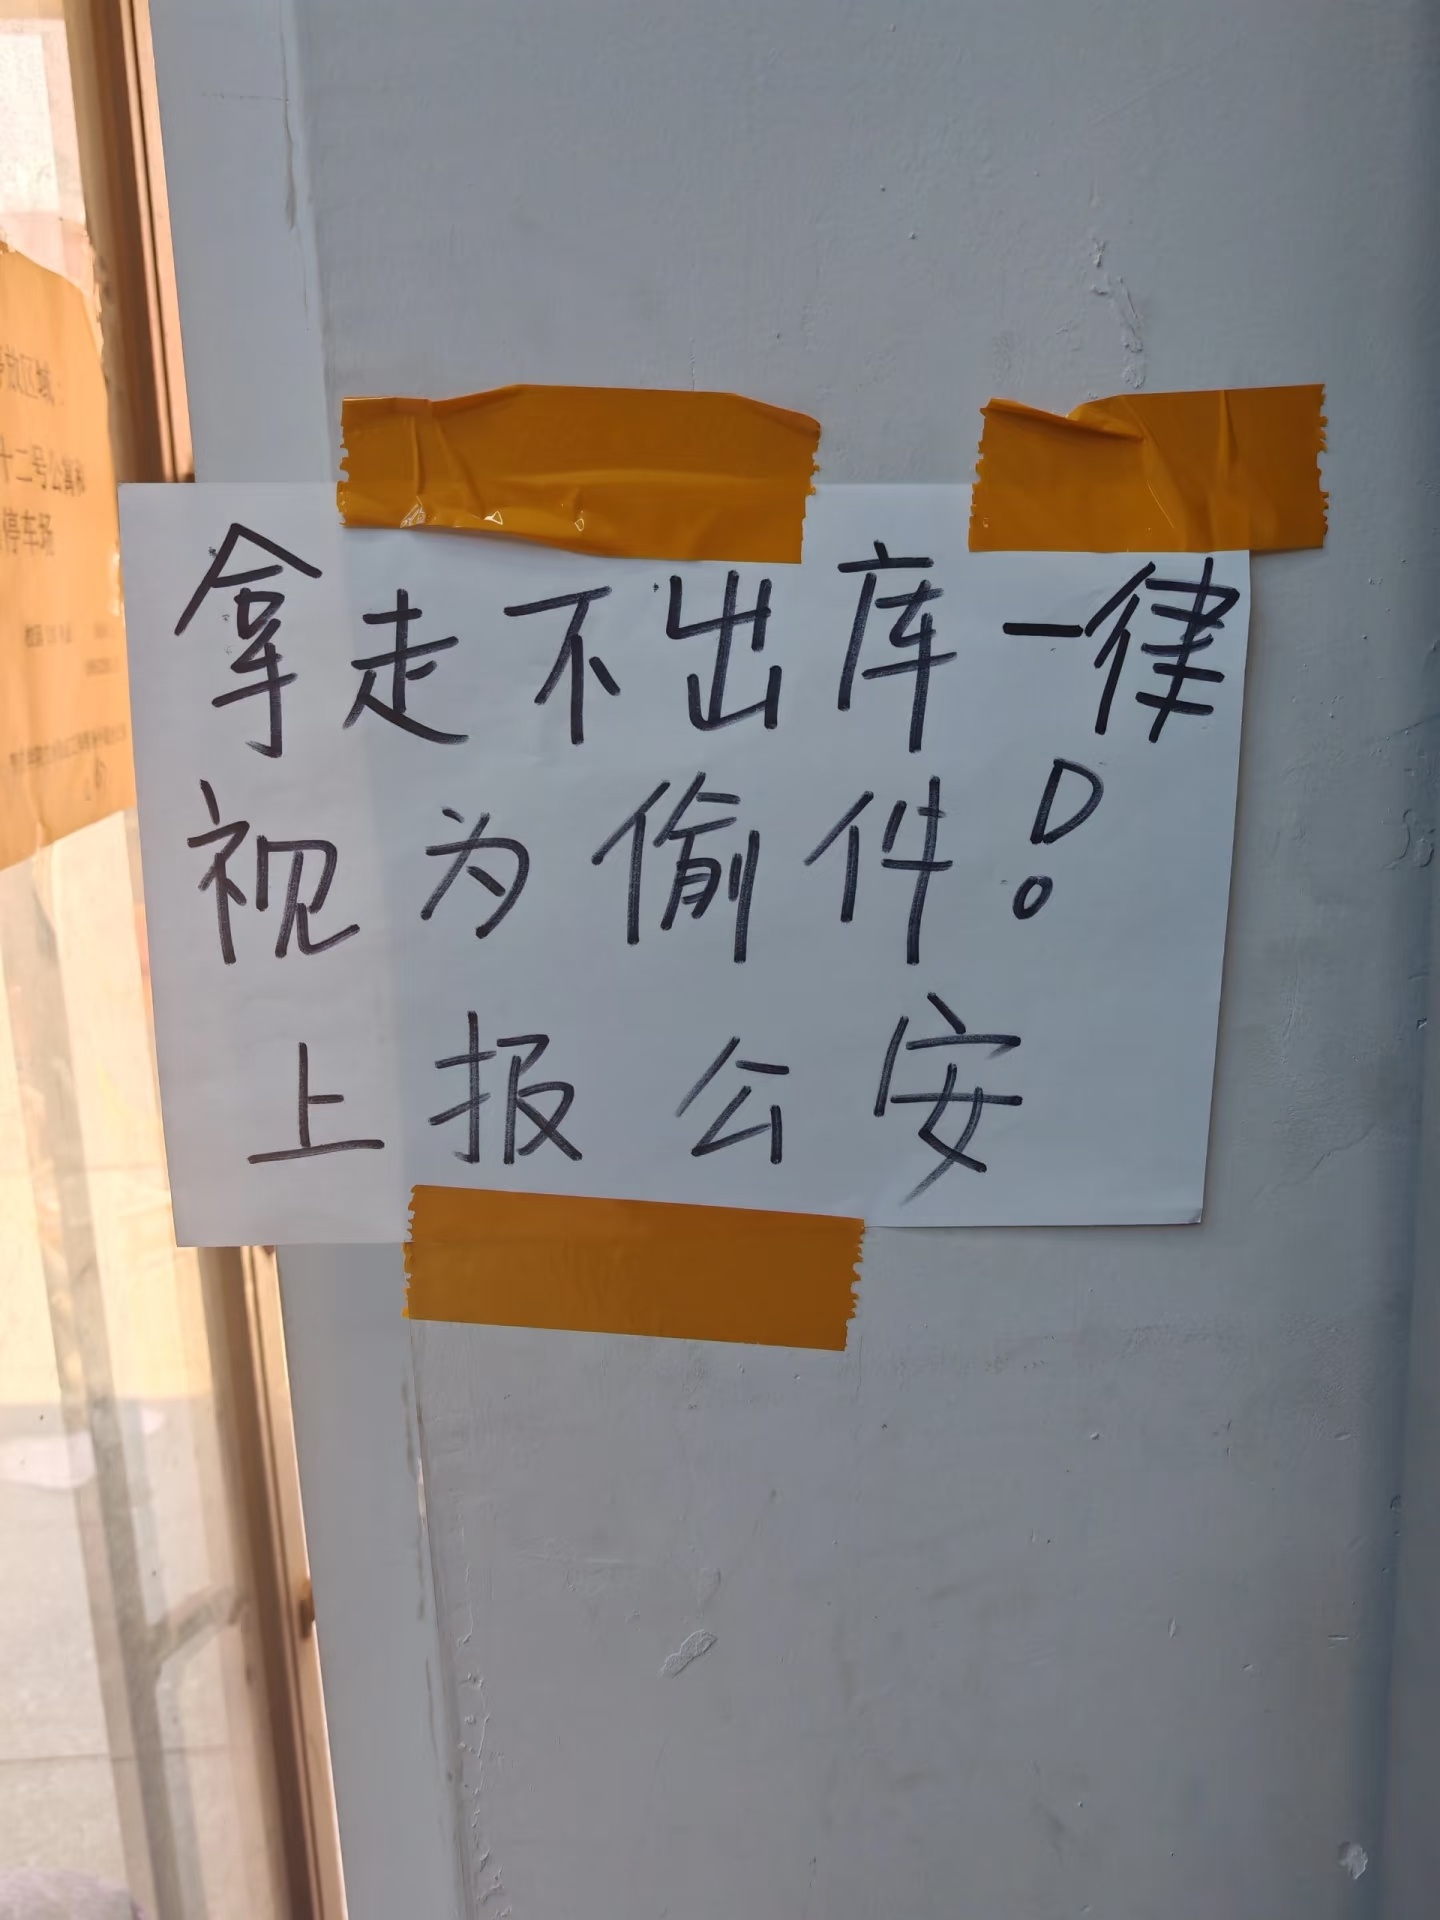 放区域:
十二号公寓和
停车场
拿走不出库一律
视为偷件!
上报公安